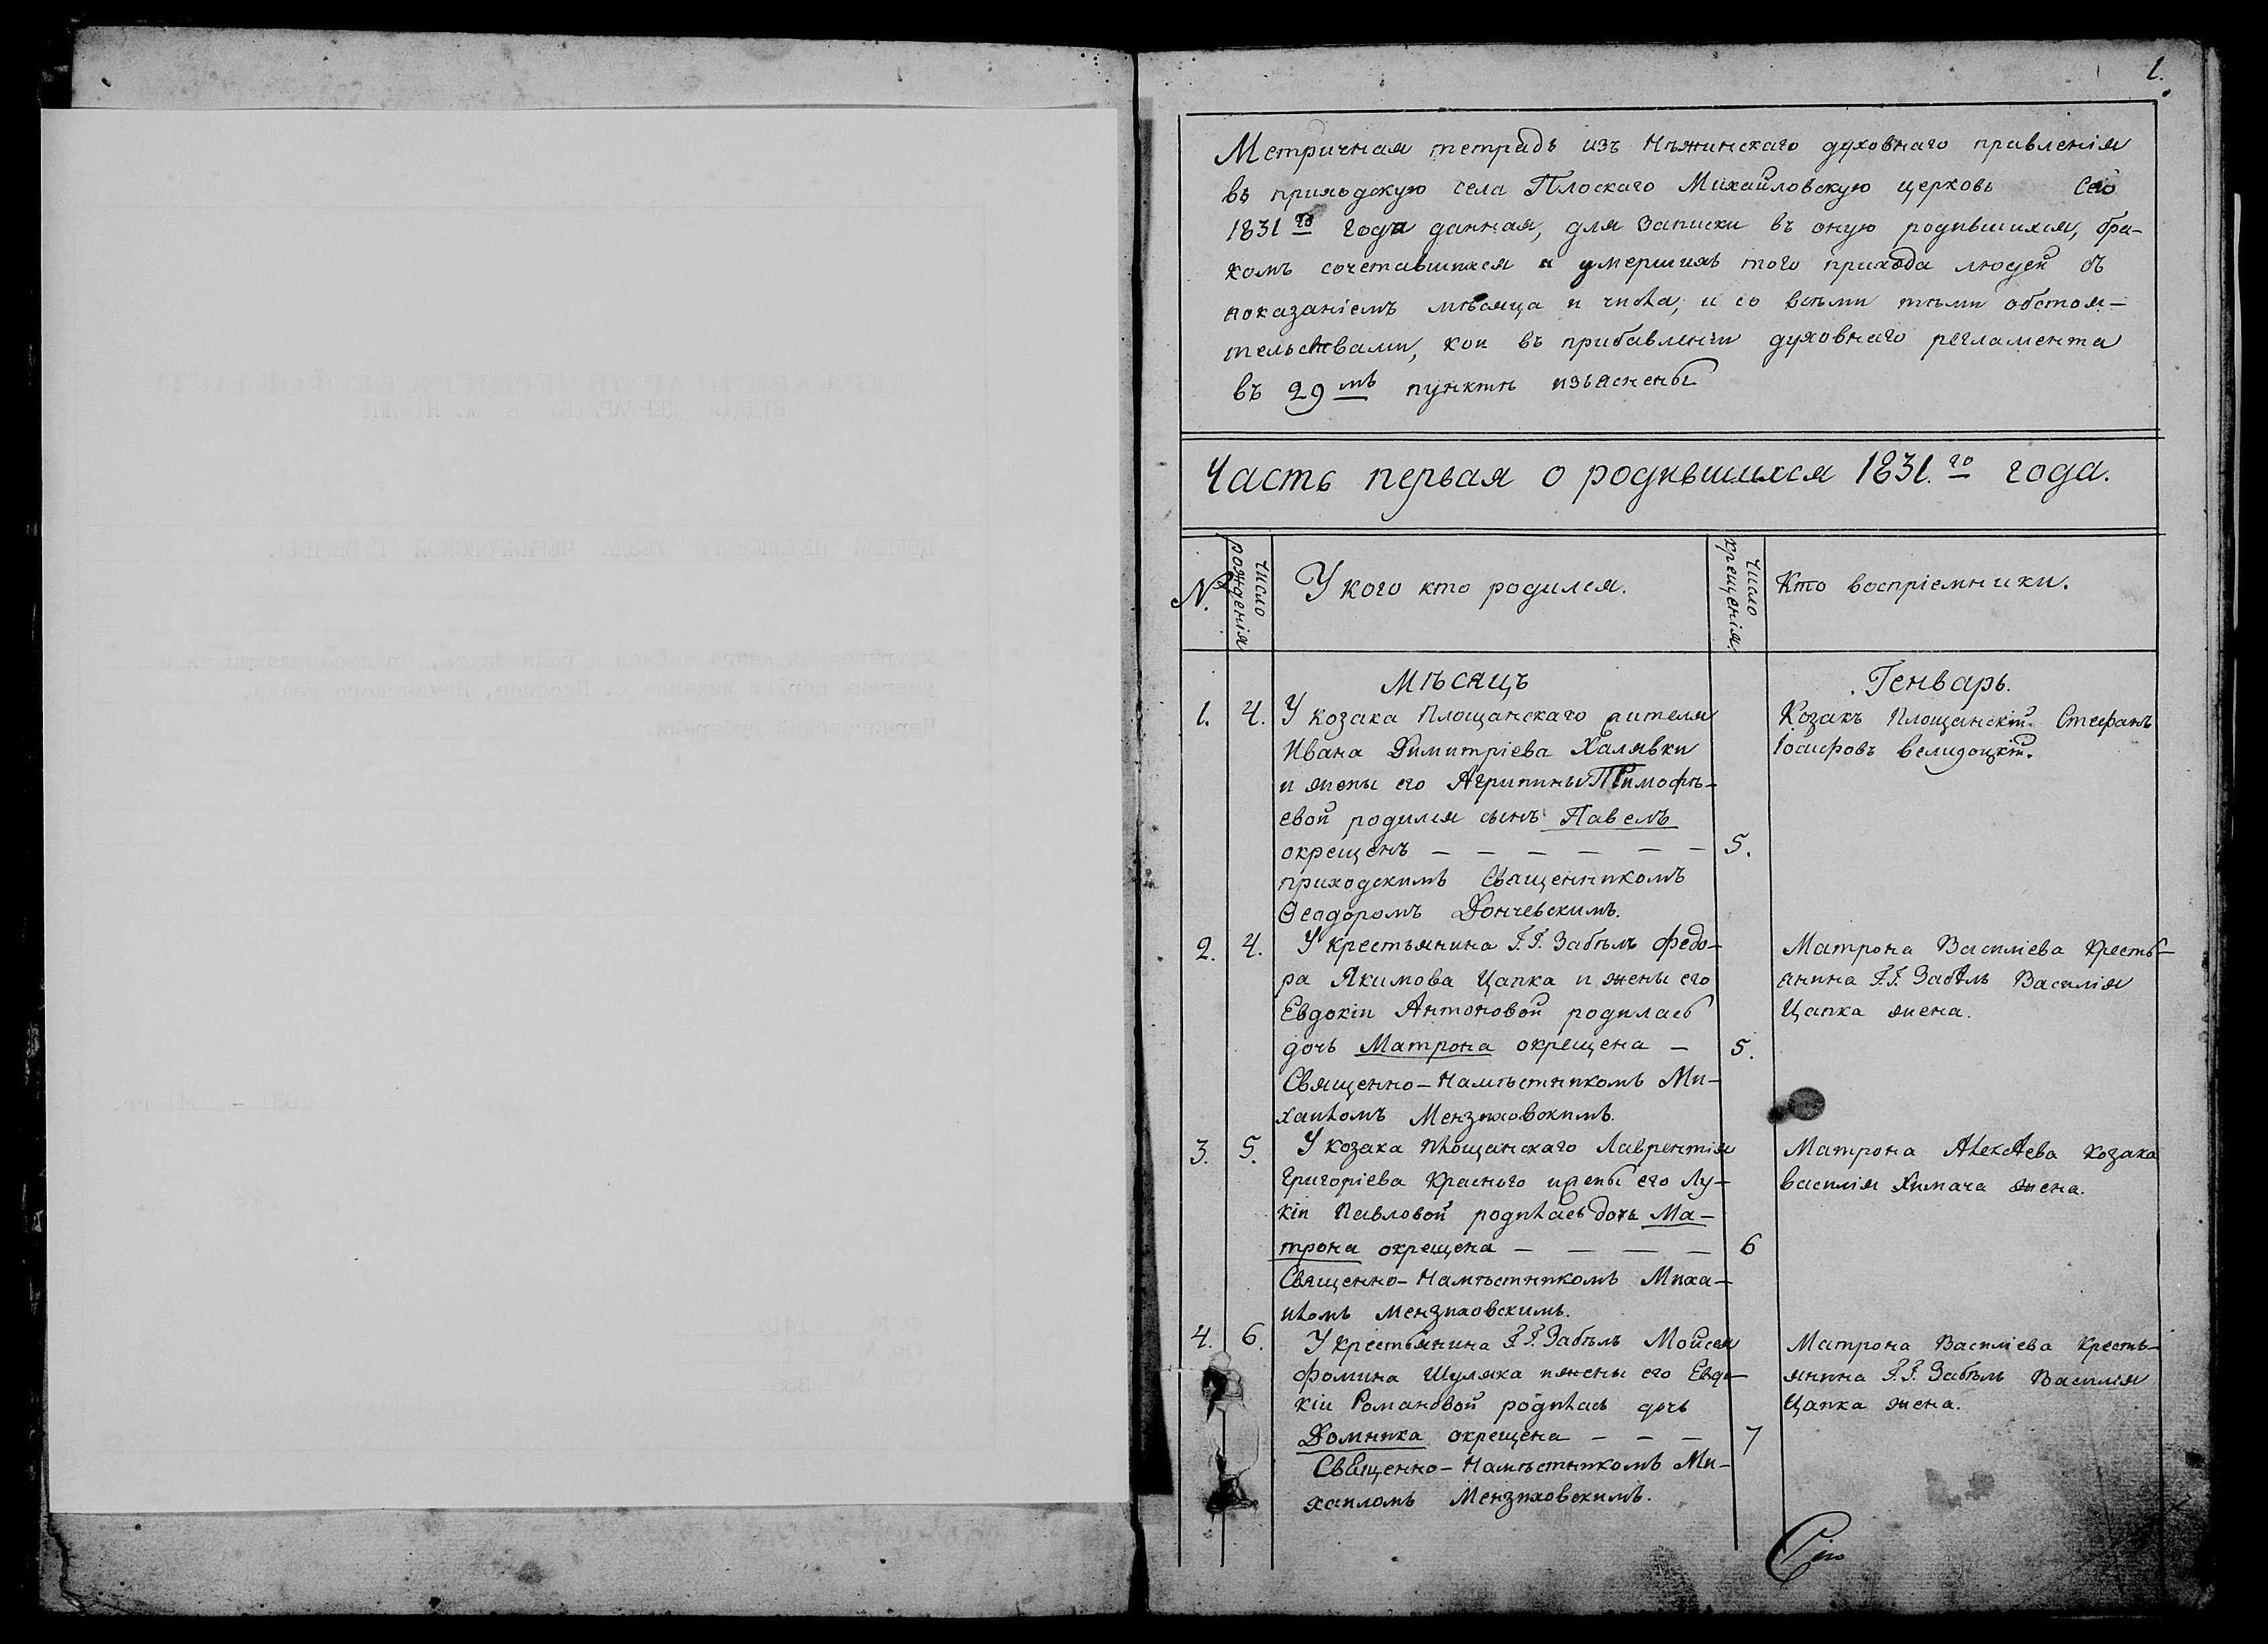 1.
Метричная тетрадь изъ Нѣжинскаго духовнаго правленія
въ приходскую села Плоскаго Михайловскую церковь сего
1831го года данная, для записки въ оную родившихся, бра-
комъ сочетавшихся и умершихъ того прихода людей съ
показаніемъ мѣсяца и числа, и со всѣми тѣми обстоя-
тельствами, кои въ прибавленіи духовнаго регламента
въ 29мъ пунктѣ изъяснены
Часть первая о родившихся 1831.го года.
№.
число рожденія
У кого кто родился.
число крещенія.
Кто воспріемники.
Мѣсяцъ
Генварь.
1. 4. У козака Площанскаго жителя
Ивана Димитріева Халявки
и жены его Агрипины Тимофѣ-
евой родился сынъ Павелъ
окрещенъ — — — — — — 5.
приходскимъ Священникомъ
Ѳеодоромъ Дончевскимъ.
Козакъ Площанскій Стефанъ
Іосифовъ Велидоцкій.
2. 4. У крестьянина Г.Г. Забѣлъ Федо-
ра Якимова Цапка и жены его
Евдокіи Антоновой родилась
дочь Матрона окрещена — 5.
Священно-Намѣстникомъ Ми-
хаиломъ Мензиховскимъ.
Матрона Василіева кресть-
янина Г.Г. Забѣлъ Василія
Цапка жена.
3. 5. У козака Площанскаго Лаврентія
Григоріева Красного и жены его Лу-
кіи Павловой родилась дочь Ма-
трона окрещена — — — — 6
Священно-Намѣстникомъ Миха-
иломъ Мензиховскимъ.
Матрона Алексѣева козака
Василія Химача жена.
4. 6. У крестьянина Г.Г. Забѣлъ Мойсея
Фомина Шуляка и жены его Евдо-
кіи Романовой родилась дочь
Домника окрещена — — — 7
Священно-Намѣстникомъ Ми-
хаиломъ Мензиховскимъ.
Матрона Василіева кресть-
янина Г.Г. Забѣлъ Василія
Цапка жена.
Сію